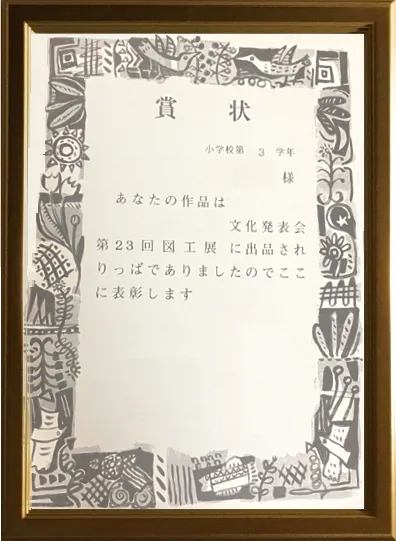 賞状
小学校第 3 学年
様
あなたの作品は
文化発表会
第23回図工展 に出品され
りっぱでありましたのでここ
に表彰します